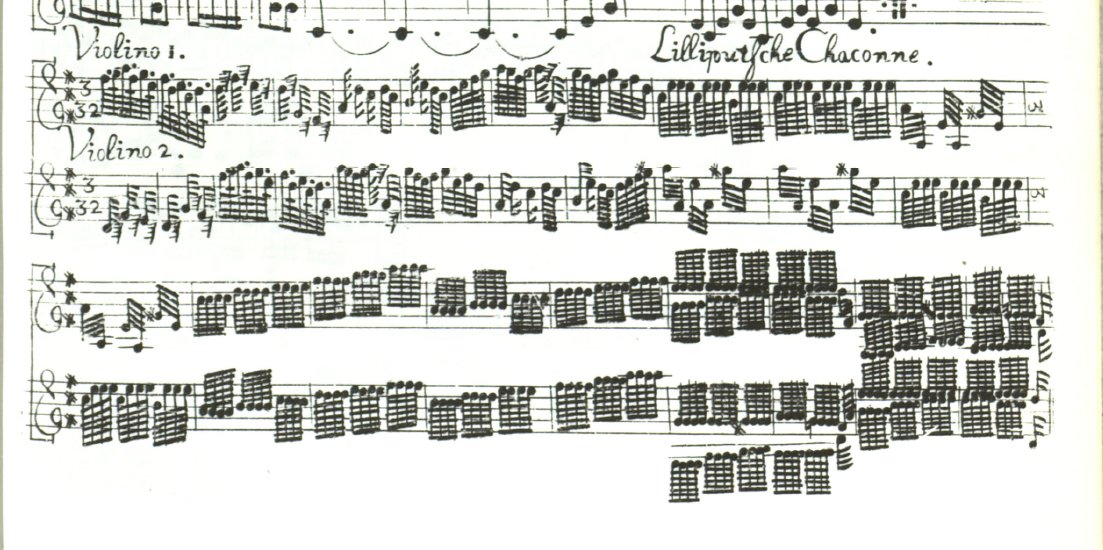 Violino 1. Lilliputsche Chaconne.
3
32
3
Violino 2.
3
32
3